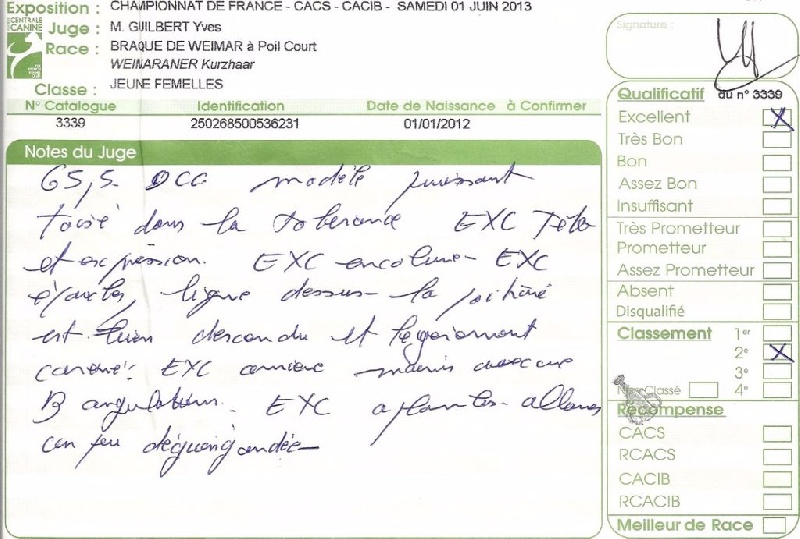 Exposition : CHAMPIONNAT DE FRANCE - CACS - CACIB - SAMEDI 01 JUIN 2013
CENTRALE
CANINE
Juge : M. GUILBERT Yves
Race : BRAQUE DE WEIMAR à Poil Court
WEIMARANER Kurzhaar
Classe : JEUNE FEMELLES
N° Catalogue Identification Date de Naissance à Confirmer
3339 250268500536231 01/01/2012
Notes du Juge
65,5. DCC modèle puissant
dans la tolerance EXC Tête
et expression. EXC encolure - EXC
épaules, ligne dessus - la poitrine
est bien descendu et légèrement
EXC arriere
B angulation. EXC aplombs - allures
un peu déguingandée
Signature :
Qualificatif du n° 3339
Excellent X
Très Bon
Bon
Assez Bon
Insuffisant
Très Prometteur
Prometteur
Assez Prometteur
Absent
Disqualifié
Classement 1er
2e X
3e
Non Classé 4e
Récompense
CACS
RCACS
CACIB
RCACIB
Meilleur de Race